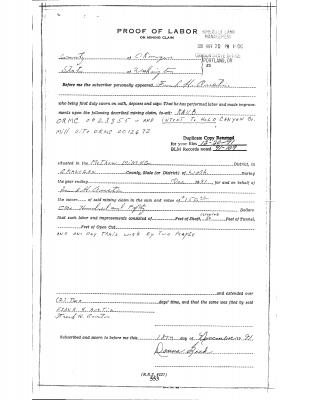 PROOF OF LABOR
ON MINING CLAIM
BUREAU OF LAND
MANAGEMENT
PORTLAND, OR
County of Okanogan
State of Washington } ss
Before me the subscriber personally appeared Frank H. Austin
who being first duly sworn on oath, deposes and says: That he has performed labor and made improve-
ments upon the following described mining claim, to-wit:
ORMC 0823955 – AND INTENT TO HOLD CANYON
MILL SITE ORMC 0012672
Duplicate Copy Returned
for your files
BLM Records noted
situated in the METHOW MINING District, in
OKANOGAN County, State (or District) of WASH. During the
year ending Dec 1991, for and on behalf of
Frank H. Austin
the owner of said mining claim in the sum and value of $150.00
One Hundred and Fifty Dollars
that such labor and improvements consisted of Feet of Shaft, Feet of Tunnel,
Feet of Open Cut
AND ONE DAY TRAIL WORK BY TWO PEOPLE
and extended over
(2) Two days' time, and that the same was (by said
FRANK H. AUSTIN
Frank H. Austin
Subscribed and sworn to before me this 18th day of November 91.
Donna